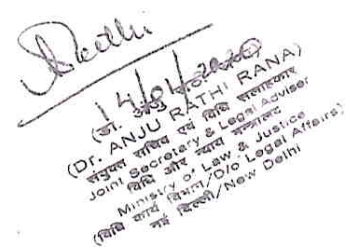 Rathi
14/04/2020
(डा. अंजु राठी राणा)
(Dr. ANJU RATHI RANA)
संयुक्त सचिव एवं विधि सलाहकार
Joint Secretary & Legal Adviser
विधि और न्याय मन्त्रालय
Ministry of Law & Justice
(विधि कार्य विभाग/D/o Legal Affairs)
नई दिल्ली/New Delhi